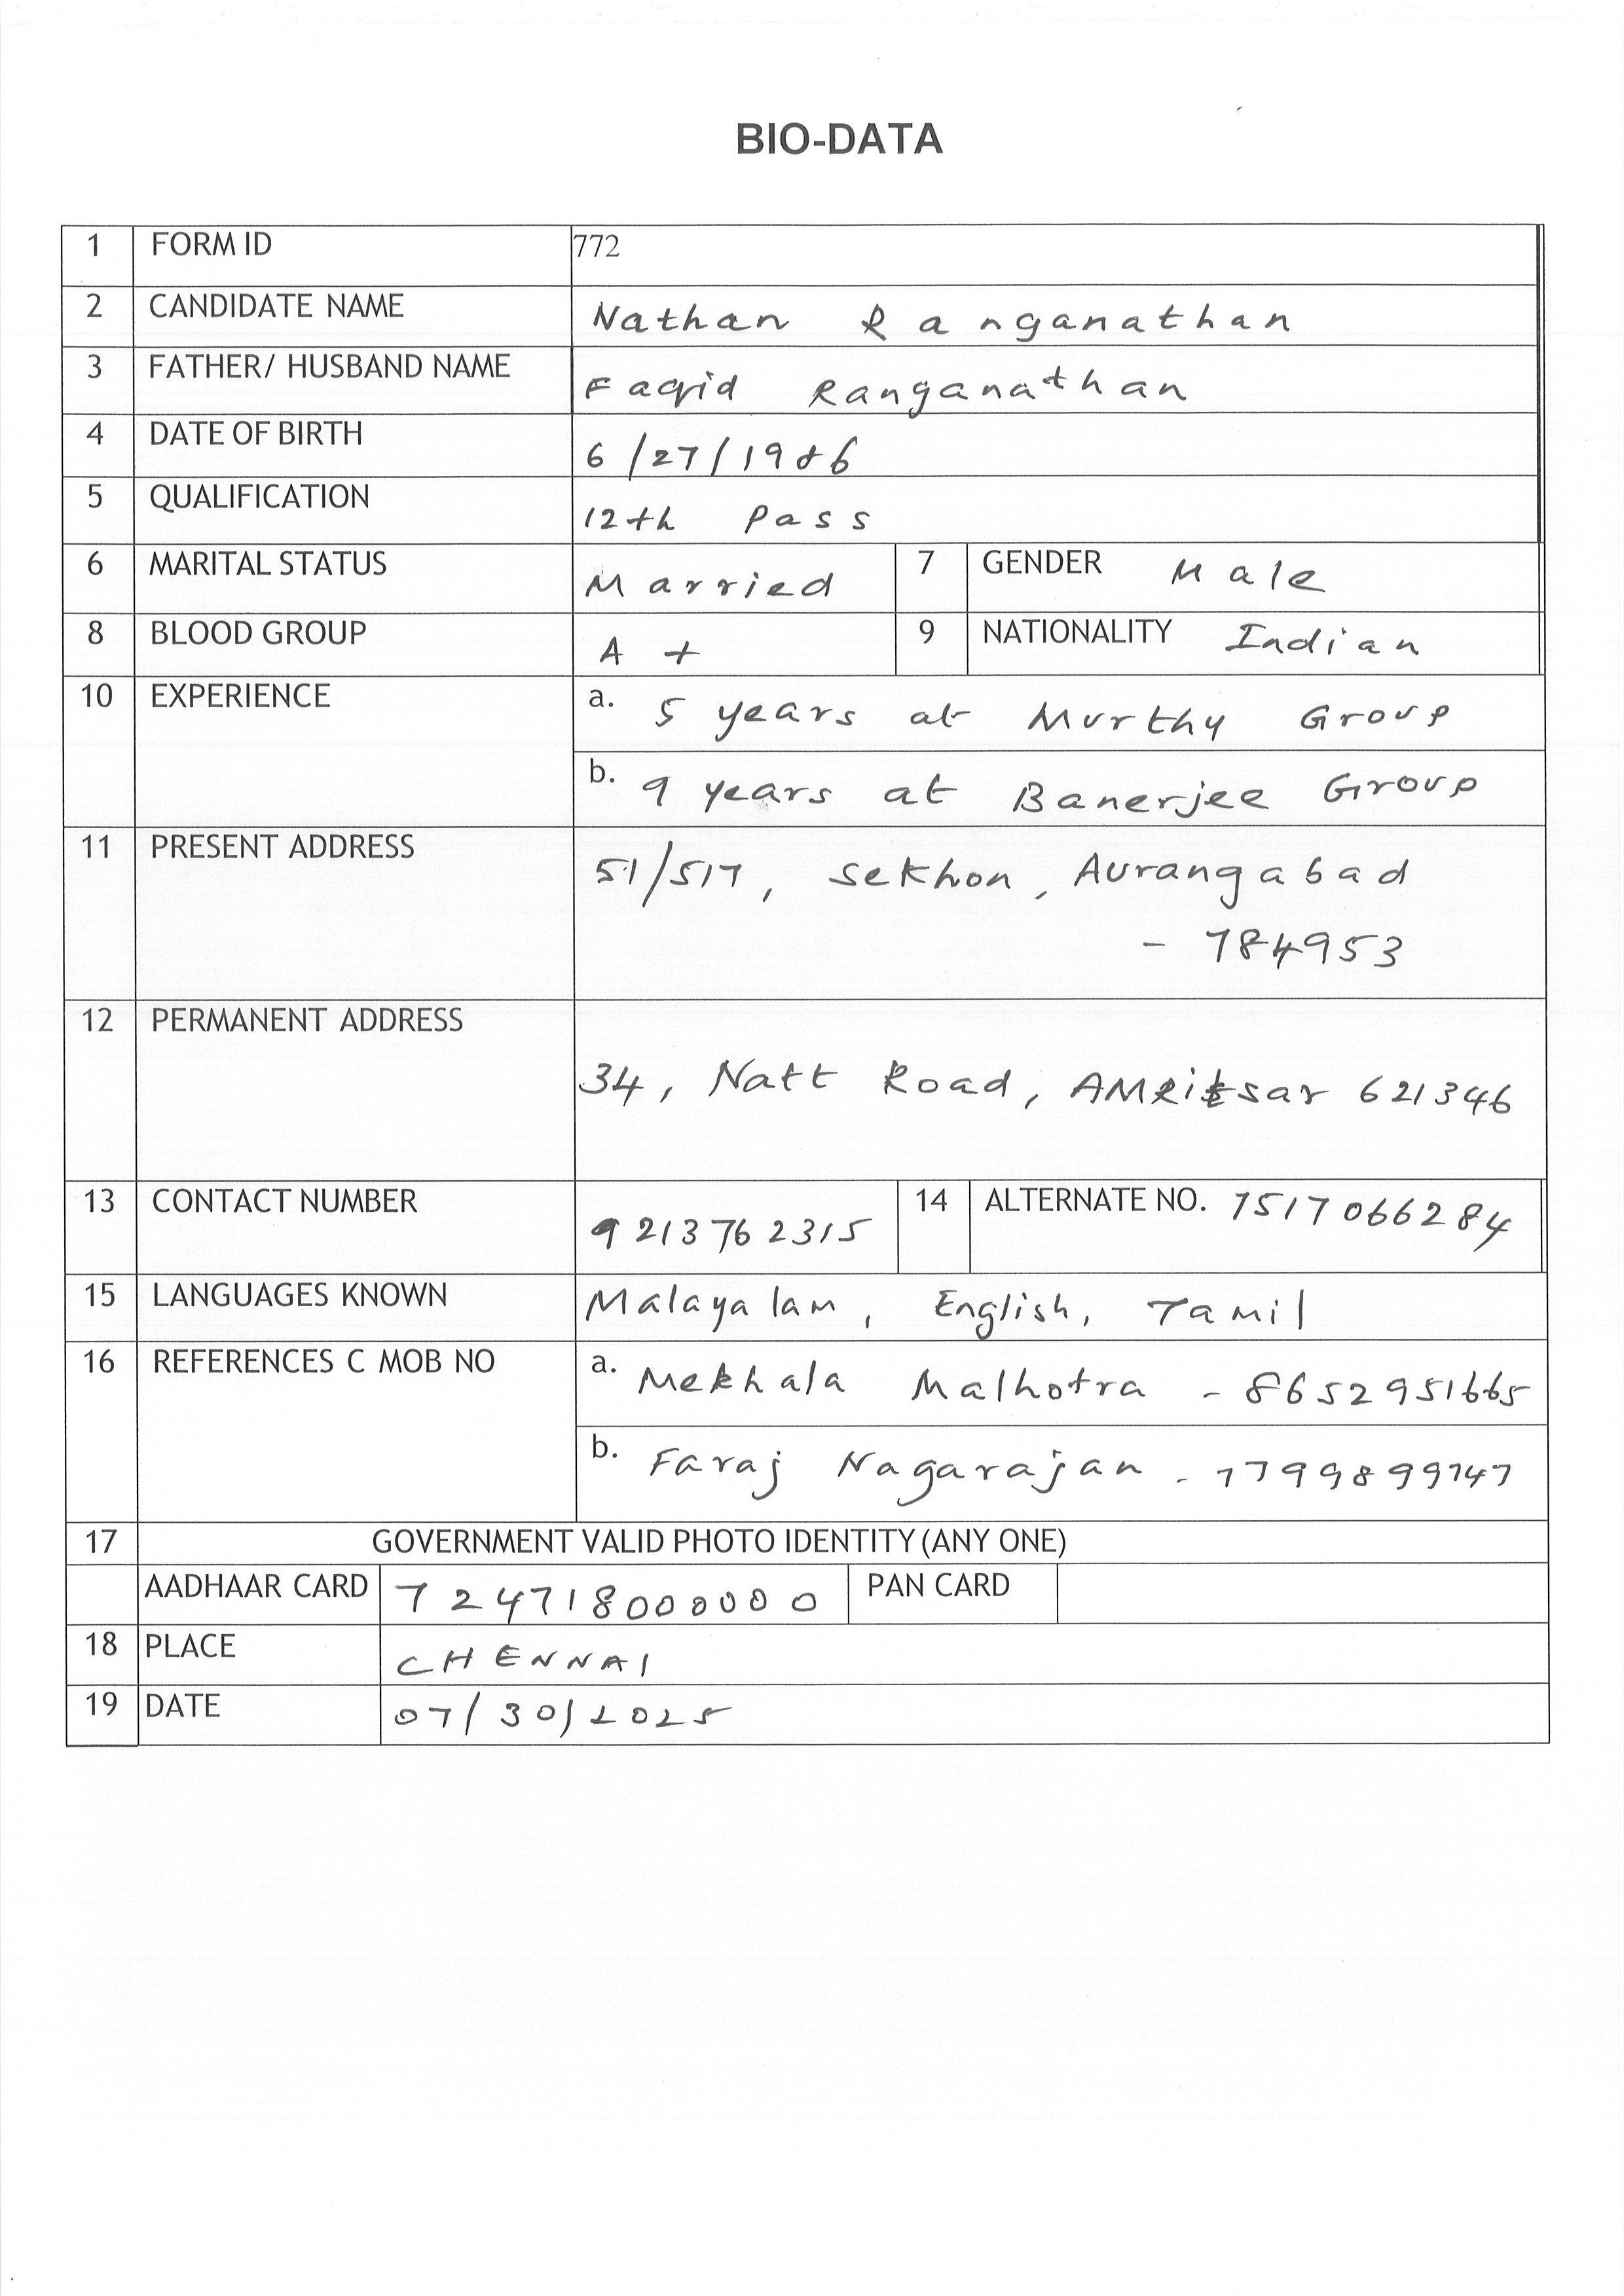 BIO-DATA
1 FORM ID 772
2 CANDIDATE NAME Nathan Ranganathan
3 FATHER/ HUSBAND NAME Faqid Ranganathan
4 DATE OF BIRTH 6/27/1986
5 QUALIFICATION 12th Pass
6 MARITAL STATUS Married 7 GENDER Male
8 BLOOD GROUP A+ 9 NATIONALITY Indian
10 EXPERIENCE a. 5 years at Murthy Group
b. 9 years at Banerjee Group
11 PRESENT ADDRESS 51/517, Sekhon, Aurangabad
- 784953
12 PERMANENT ADDRESS
34, Natt Road, AMRitsar 621346
13 CONTACT NUMBER 9213762315 14 ALTERNATE NO. 7517066284
15 LANGUAGES KNOWN Malayalam, English, Tamil
16 REFERENCES C MOB NO a. Mekhala Malhotra - 8652951665
b. Faraj Nagarajan - 7799899747
17 GOVERNMENT VALID PHOTO IDENTITY (ANY ONE)
AADHAAR CARD 724718000000 PAN CARD
18 PLACE CHENNAI
19 DATE 07/30/2025